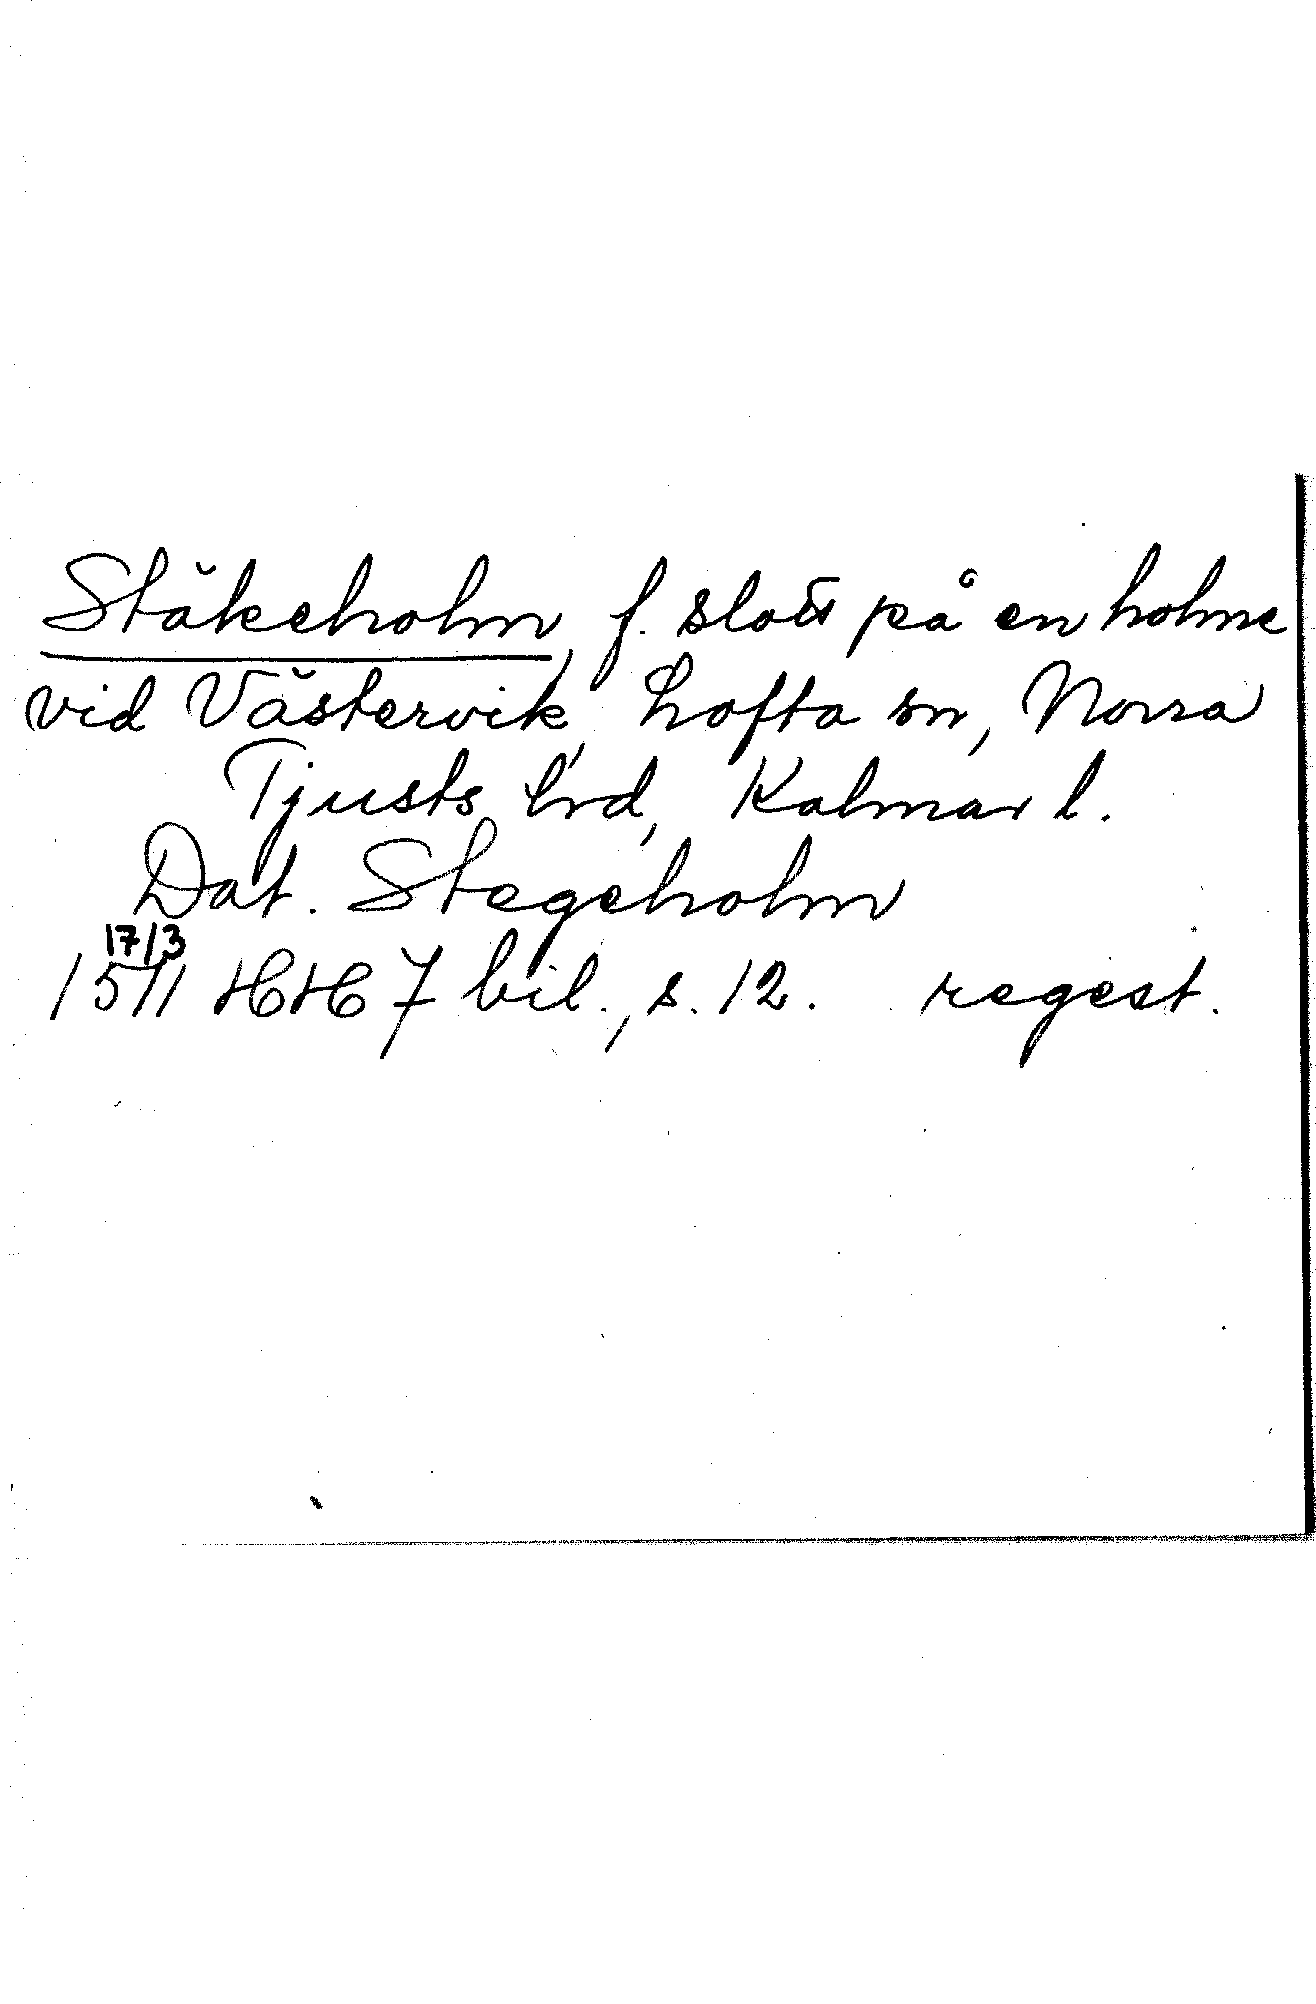 Stäkeholm, f. slott på en holme
vid Västervik, Lofta sn, Norra
Tjusts hrd, Kalmar l.
Dat. Stegeholm
17/3
1511 HH 7 bil., s. 12. regest.